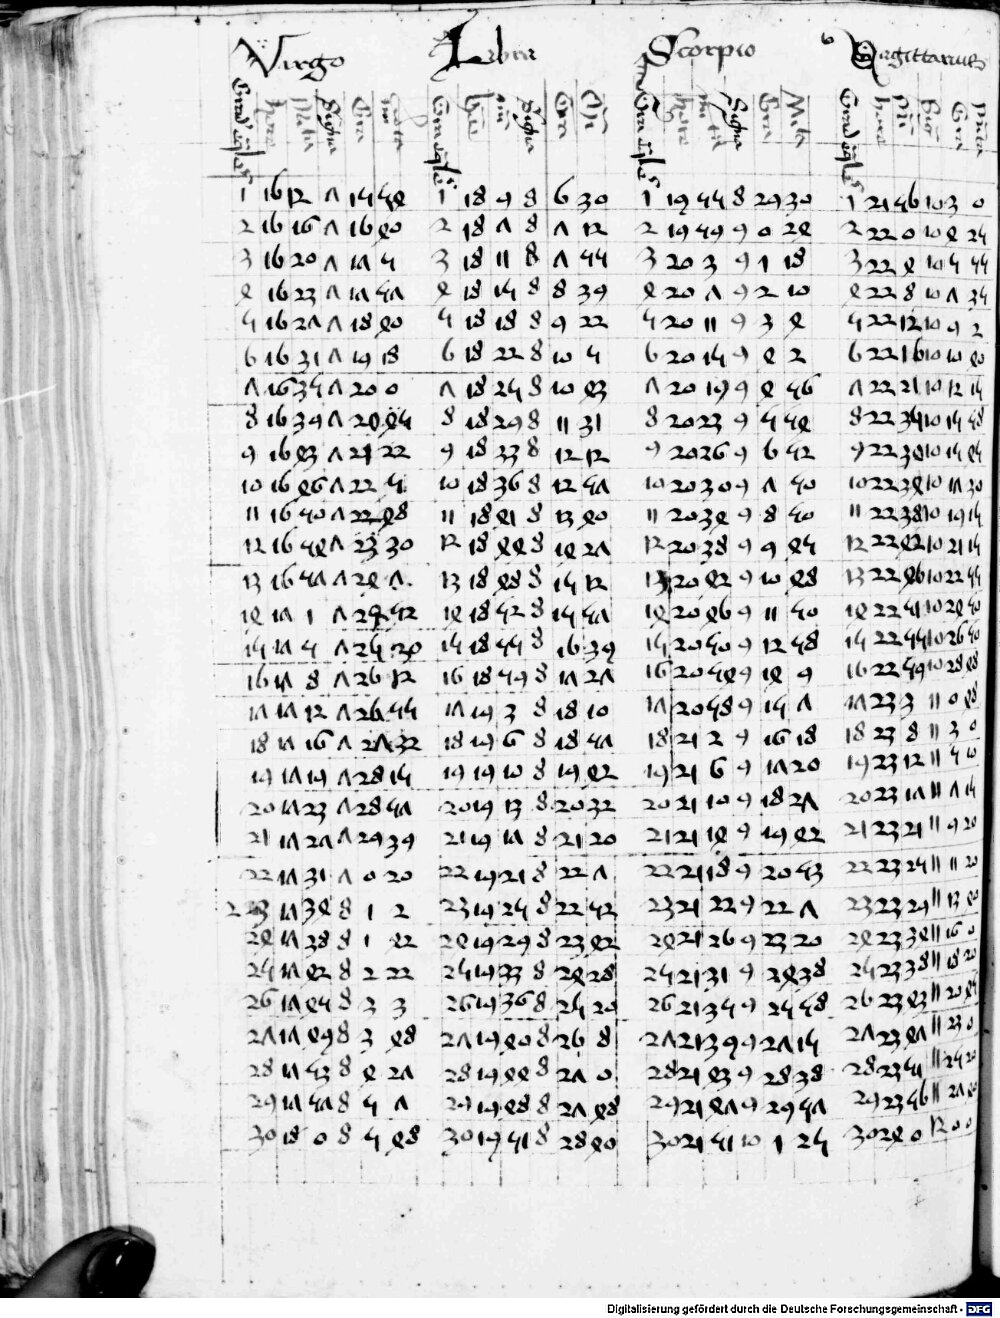 Virgo Libra Scorpio Sagittarius
Signa Signa Signa
1 16 12 7 15 54 1 18 9 8 6 30 1 19 55 8 29 30 1 21 56 10 3 0
2 16 16 7 16 40 2 18 7 8 7 12 2 19 59 9 0 24 2 22 0 10 4 25
3 16 20 7 17 5 3 18 11 8 7 55 3 20 3 9 1 18 3 22 4 10 5 55
4 16 23 7 17 57 4 18 15 8 8 39 4 20 7 9 2 10 4 22 8 10 7 35
5 16 27 7 18 40 5 18 18 8 9 22 5 20 11 9 3 4 5 22 12 10 9 2
6 16 31 7 19 18 6 18 22 8 10 5 6 20 15 9 4 2 6 22 16 10 10 40
7 16 35 7 20 0 7 18 25 8 10 43 7 20 19 9 4 56 7 22 21 10 12 15
8 16 39 7 20 45 8 18 29 8 11 31 8 20 23 9 5 54 8 22 10 15 58
9 16 43 7 21 22 9 18 33 8 12 12 9 20 26 9 6 52 9 22 10 15 45
10 16 46 7 22 5 10 18 36 8 12 57 10 20 30 9 7 50 10 22 34 10 17 30
11 16 50 7 22 48 11 18 41 8 13 40 11 20 34 9 8 50 11 22 38 10 19 15
12 16 54 7 23 30 12 18 44 8 14 27 12 20 38 9 9 45 12 22 42 10 21 15
13 16 57 7 24 7 13 18 48 8 15 12 13 20 42 9 10 48 13 22 46 10 22 55
14 17 1 7 52 14 18 52 8 15 57 14 20 46 9 11 50 14 22 51 10 24 50
15 17 5 7 25 30 15 18 55 8 16 39 15 20 50 9 12 58 15 22 55 10 26 50
16 17 8 7 26 12 16 18 59 8 17 27 16 20 54 9 14 9 16 22 59 10 28 48
17 17 12 7 26 55 17 19 3 8 18 10 17 20 58 9 15 7 17 23 3 11 0 48
18 17 16 7 27 32 18 19 6 8 18 57 18 21 2 9 16 18 18 23 8 11 3 0
19 17 19 7 28 15 19 19 10 8 19 42 19 21 6 9 17 20 19 23 12 11 5 0
20 17 23 7 28 57 20 19 13 8 20 32 20 21 10 9 18 27 20 23 17 11 7 15
21 17 27 7 29 39 21 19 17 8 21 20 21 21 14 9 19 42 21 23 21 11 9 20
22 17 31 7 0 20 22 19 21 8 22 7 22 21 18 9 20 53 22 23 25 11 11 20
23 17 34 8 1 2 23 19 25 8 22 52 23 21 22 9 22 7 23 23 29 11 13 40
24 17 38 8 1 42 24 19 29 8 23 42 24 21 26 9 23 20 24 23 34 11 16 0
25 17 42 8 2 22 25 19 33 8 24 28 25 21 31 9 24 38 25 23 38 11 18 20
26 17 45 8 3 3 26 19 36 8 25 20 26 21 35 9 25 58 26 23 43 11 20 45
27 17 49 8 3 48 27 19 40 8 26 8 27 21 39 9 27 15 27 23 47 11 23 0
28 17 53 8 4 27 28 19 44 8 27 0 28 21 43 9 28 38 28 23 51 11 25 20
29 17 57 8 5 7 29 19 48 8 27 48 29 21 47 9 29 57 29 23 56 11 27 40
30 18 0 8 5 48 30 19 51 8 28 40 30 21 51 10 1 25 30 24 0 12 0 0
Digitalisierung gefördert durch die Deutsche Forschungsgemeinschaft - DFG